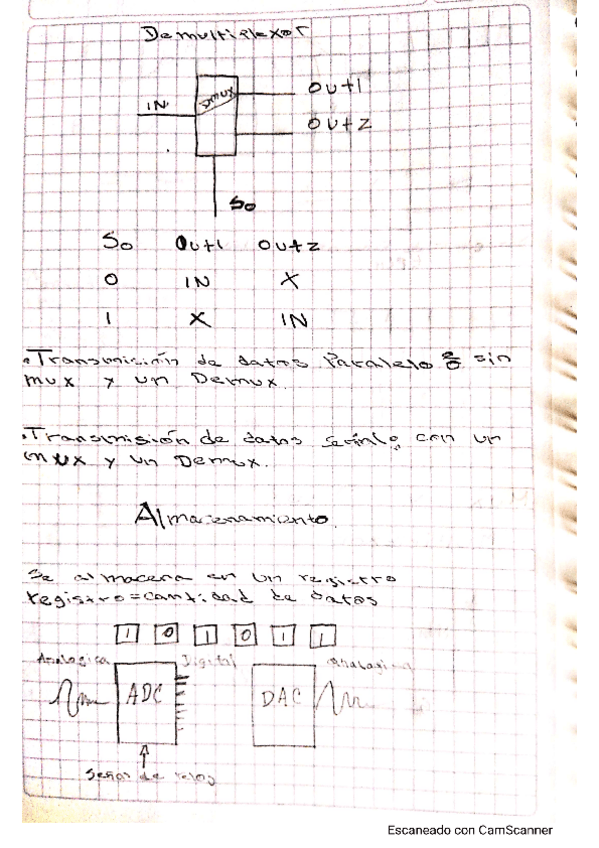 Demultiplexor
IN
Dmux
OUt1
OUt2
So
So Out1 Out2
0 IN X
1 X IN
.Transmición de datos Paralelo sin
mux y un Demux.
.Transmisión de datos con un
mux y un Demux.
Almacenamiento.
Se almacena en un registro
registro=cantidad de datos
1 0 1 0 1 1
Analogica Digital Analogica
ADC DAC
Señal de reloj
Escaneado con CamScanner